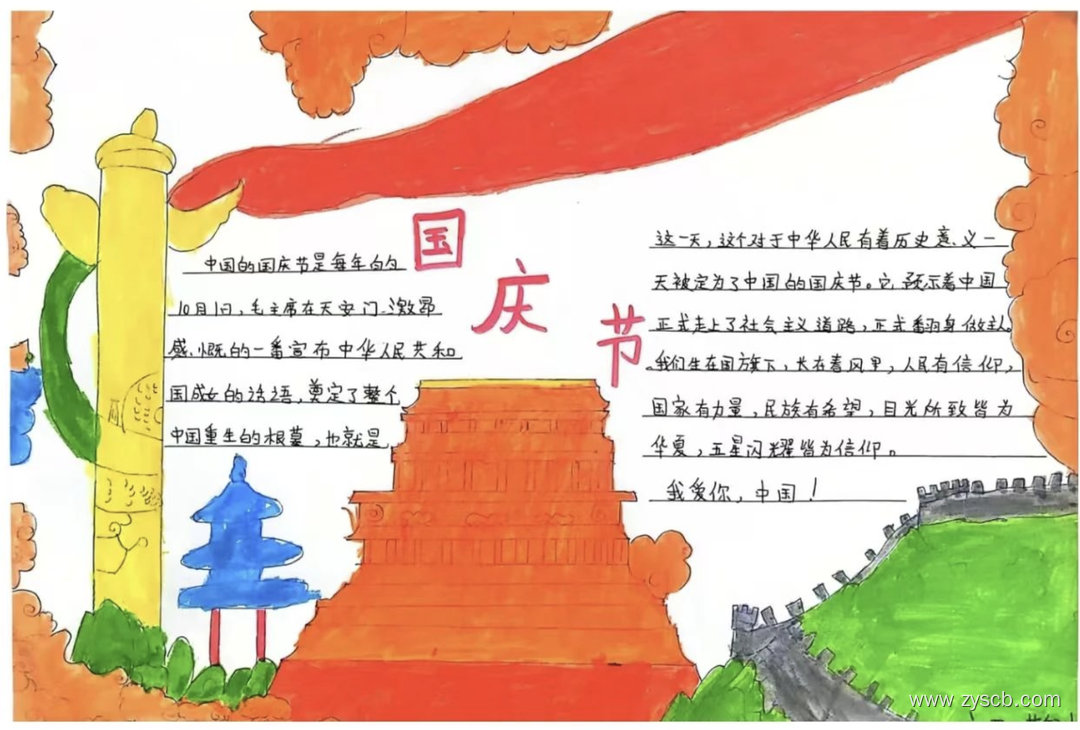 国庆节
中国的国庆节是每年的
10月1日,毛主席在天安门激昂
感慨的一番宣布中华人民共和
国成立的话语,奠定了整个
中国重生的根蔓,也就是
这一天,这个对于中华人民有着历史意义一
天被定为了中国的国庆节。它预示着中国
正式走上了社会主义道路,正式翻身做主人。
我们生在国旗下,长在春风里,人民有信仰,
国家有力量,民族有希望,目光所致皆为
华夏,五星闪耀皆为信仰。
我爱你,中国!
www.zyscb.com